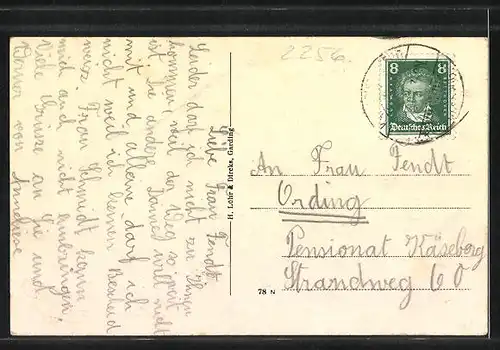 2256.
8 8
Deutsches Reich
Liebe Frau Fendt
Leider darf ich nicht zu Ihnen
kommen, weil der Weg so weit
ist. Die andere Dame will nicht
mit und alleine darf ich
nicht weil ich keinen Bescheid
weiss. Frau Schmidt kann
mich auch nicht hinbringen.
Viele Grüsse an Sie und
Werner von Anneliese
H. Lohr & Dircks, Garding
An Frau Fendt
Ording
Pensionat Käseberg
Strandweg 60
78 N